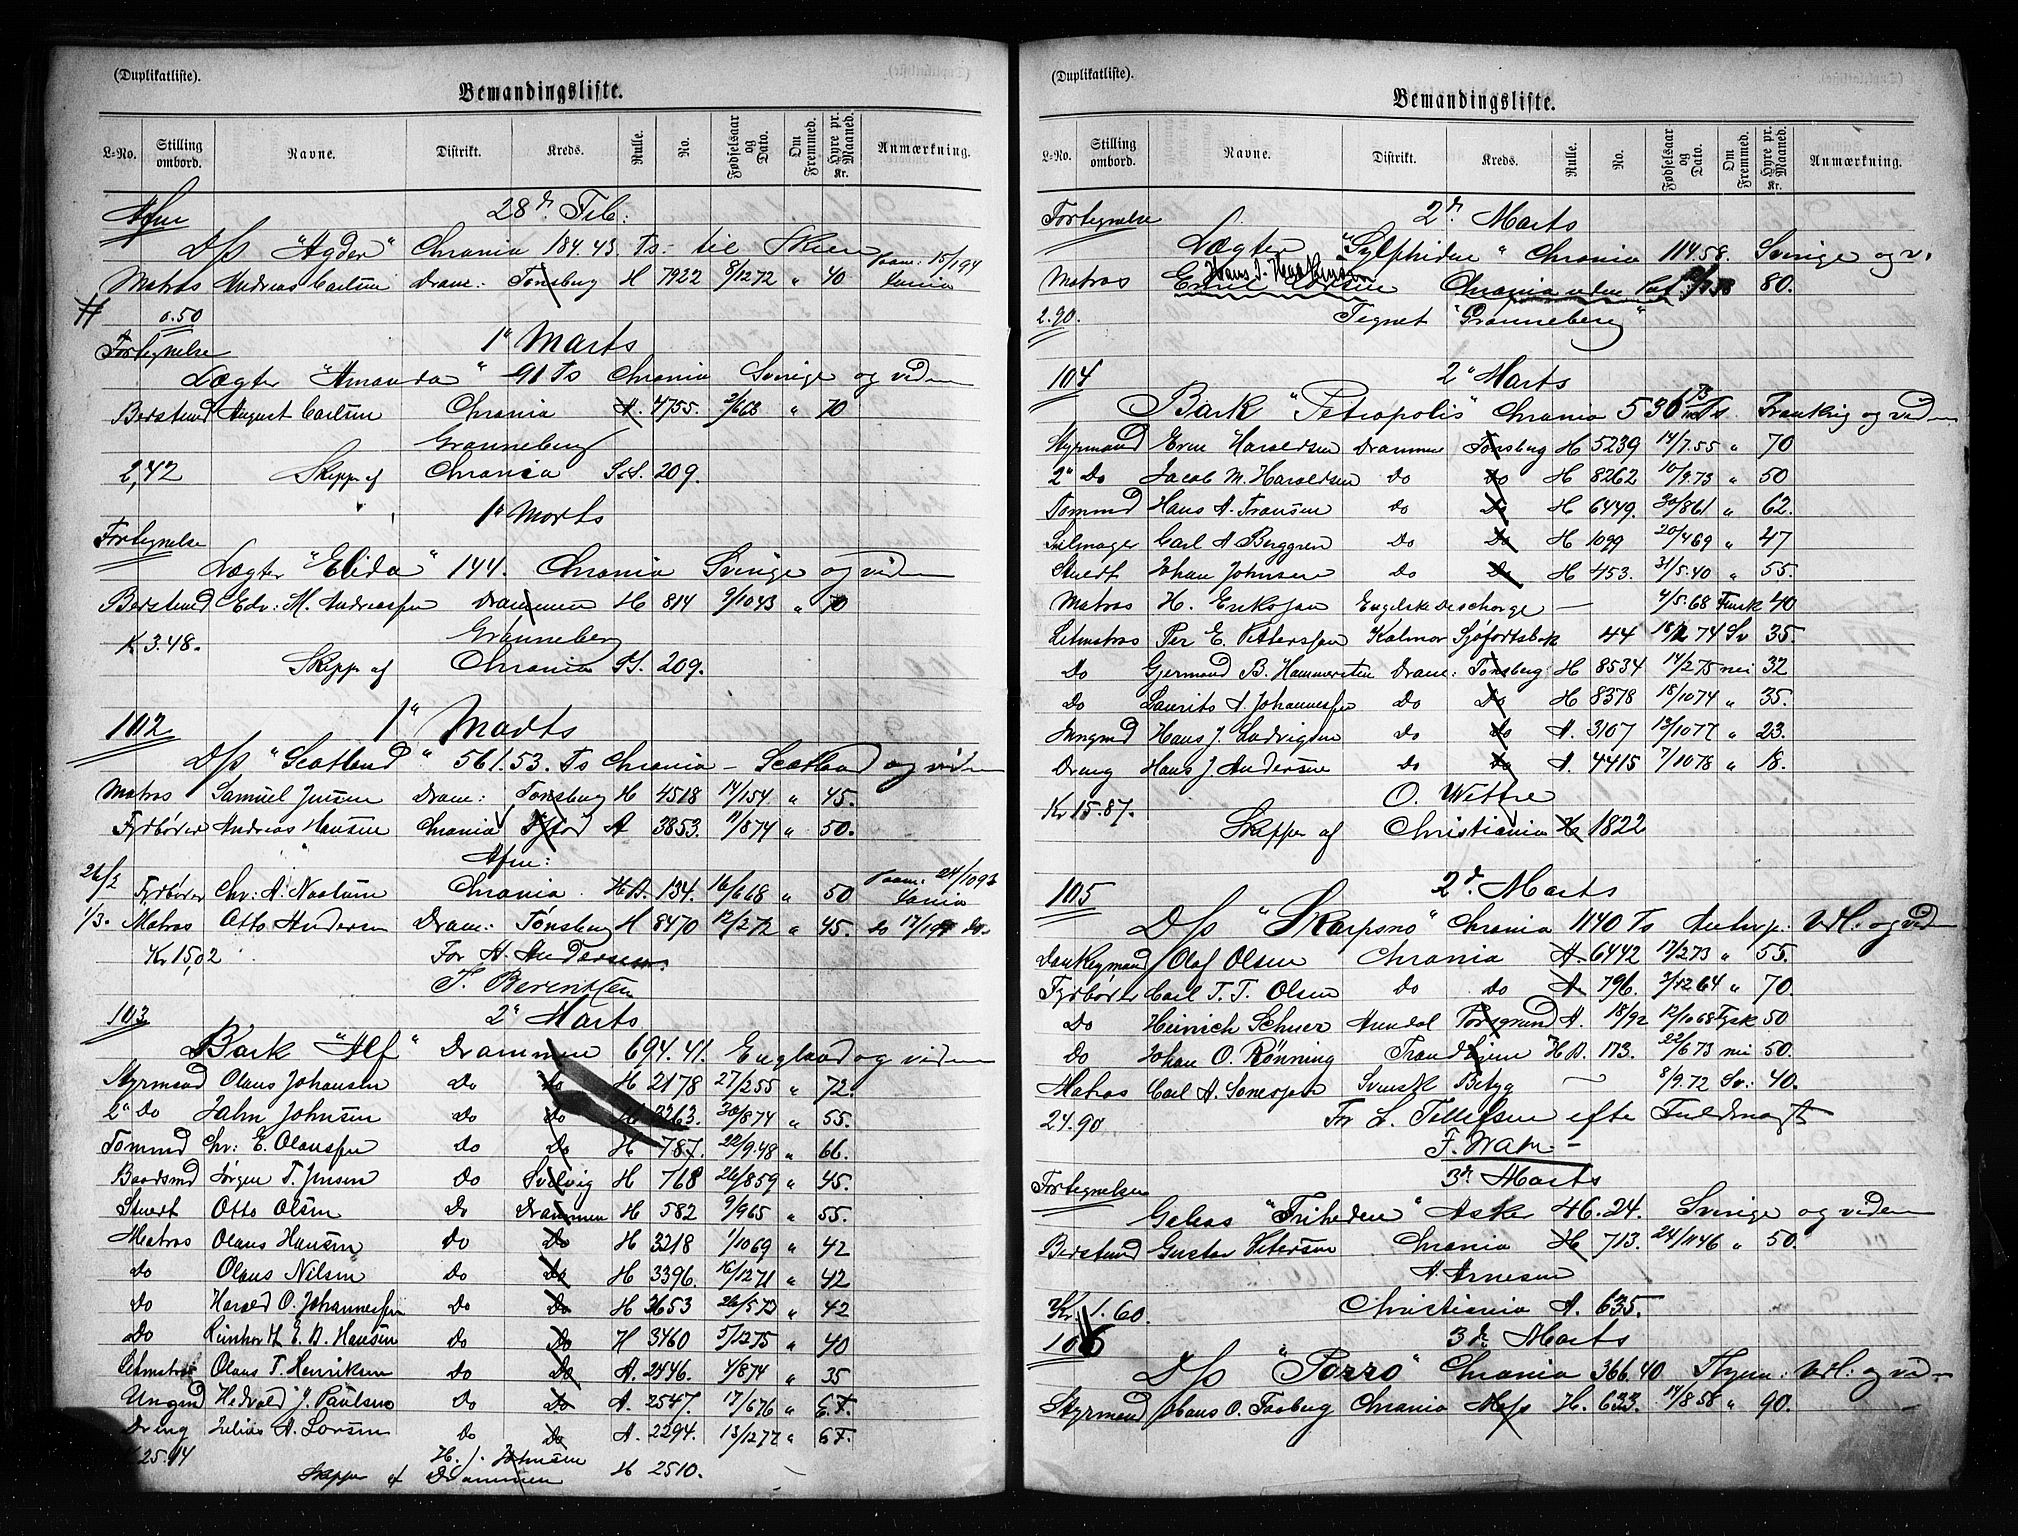 (Duplikatliste).
Bemandingsliste.
L-No. Stilling ombord. Navne. Distrikt. Kreds. Rulle. No. Fødselsaar og Dato. Om Fremmed. Hyre pr. Maaned. Kr. Anmærkning.
Afm 28d Feb:
D/s "Agder" Chrania 184.43. Ts. til Skien
Matros Andreas Carlsen Dram: Tønsberg H 7922 8/1272 " 40 Paam: 15/194
0.50
Fortegnelse 1d Marts
Lægter "Amanda" 91 Ts Chrania Sverige og viden
Bestmd August Carlsen Chrania A. 4755. 2/668 " 70
Grønneberg
2,42 Skipper af Chrania S.S. 209.
1d Marts
Fortegnelse
Lægter "Elida" 144. Chrania Sverige og viden
Bestmd Edv: M. Andreassen Drammen H 814 9/1043 " 70
Grønneberg
K 3.48.
Skipp af Chrania S.S. 209.
102 1d Marts
D/s "Scotland" 561.53. Ts Chrania - Scotland og viden
Matros Samuel Jensen Dram: Tønsberg H 4518 14/154 " 45.
Fyrbøder Andreas Hansen Chrania A 3853. 11/874 " 50.
Afm:
26/2 Fyrbøder Chr: A. Chrania H.A. 134. 16/668 " 50 Paam: 24/1093
1/3. Matros Otto Andersen Dram: Tønsberg H 8470 12/272 " 45. do
Kr 15,02 For A. Andersen.
T. Berentsen
103 2d Marts
Bark "Alf" Drammen 694.41. England og viden
Styrmand Olaus Johansen Do Do H 2178 27/255 " 72.
2d Do Jahn Johnsen Do Do H 3263. 30/874 " 55.
Tømmd Chr: E. Olaussen Do Do H 787. 22/948 " 66.
Baadsmd Jørgen T. Jensen Do Svelvig H 768 26/859 " 45.
Stuert Otto Olsen Do Drammen H 582 9/965 " 55.
Matros Olaus Hansen Do Do H 3218 1/1069 " 42
Do Olaus Nilsen Do Do H 3396. 16/1271 " 42
Do Harald O. Johannessen Do Do H 3653 26/573 " 42
Do Reinhardt E. A. Hansen Do Do H 3460 5/1275 " 40
Letmatros Olaus T. Henriksen Do Do A. 2446. 4/874 " 35
Ungmd Hedvald J. Paulsen Do Do A. 2547. 17/676 " 6.F.
Dreng Julius A. Larsen Do Do A. 2294. 13/1277 " 6F.
25.14 H. J. Johnsen
Skipper af Drammen H 2510.
(Duplikatliste).
Bemandingsliste.
L-No. Stilling ombord. Navne. Distrikt. Kreds. Rulle. No. Fødselsaar og Dato. Om Fremmed. Hyre pr. Maaned. Kr. Anmærkning.
Fortegnelse 2d Marts
Lægter "Sylphiden" Chrania 114.58. Sverige og v.
Matros Hans I. Haakensen Chrania uden 80.
2.90. Tegnet "Grønneberg"
104 2d Marts
Bark "Petropolis" Chrania 536 Ts. Frankrig og viden
Styrmand Even Haroldsen Drammen Tønsberg H 5239 14/7.55 " 70
2d Do Jacob M. Haroldsen do Do H 8262 10/9.73 " 50
Tømmd Hans A. Fransen do Do H 6449. 30/861 " 62.
Seilmager Carl A Berggren Do Do H 1099 20/469 " 47
Stuert Johan Johnsen Do Do H 453. 31/5.40 " 55.
Matros H. Eriksson Engelsk Descharge — 4/5.68 Finsk 40
Letmatros Per E. Pettersson Kalmar Sjøfartsbok 44 18/2 74 Sv 35.
Do Gjermund B. Hammersten Dram: Tønsberg H 8534 14/275 nei 32
Do Laurits A. Johannessen Do Do H 8378 18/1074 " 35.
Jungmd Hans J. Ludvigsen do do A. 3107 13/1077 " 23.
Dreng Hans J Andersen do Do A. 4415 7/1078 " 18.
O. Wettre
Kr 15.87.
Skipper af Christiania H 1822
105 2d. Marts
D/s "Skarpsno" Chrania 1140 Ts Antwp. Vdl. og viden
Donkeymand Olaf Olsen Chrania A. 6442 17/273 " 55.
Fyrbøder Carl T. T. Olsen do do A 796. 3/1264 " 70.
Do Heinrich Schuer Arendal Porsgrund A. 18/92 12/1068 Tysk 50
Do Johan O. Rønning Trondhjem H.A. 173. 22/673 nei 50.
Matros Carl A. Svensk Betyg — 8/9.72 Sv: 40.
24.90 For L. Tellefsen efter Fuldmagt
F. Wahr —
3d Marts
Fortegnelsen
Galeas "Friheden" Asker 46.24. Sverige og viden
Bestmd Gustav Petersen Chrania H 713. 24/1146 " 50.
A. Arnesen
Kr. 1.60. Christiania A. 635.
106 3d Marts
D/s "Porro" Chrania 366.40 Vdl: og vid
Styrmand Hans O. Faaberg Chrania H. 633. 14/858 " 90.